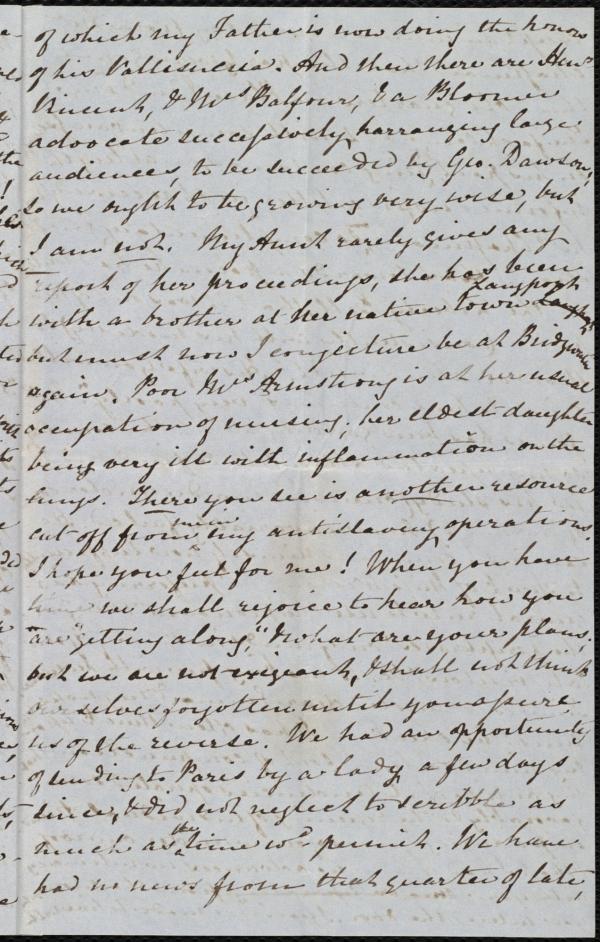 of which my Father is now doing the honors
of his Vallisneria. And then there are Heny
Vincent, & Mrs Balfour, & a Bloomer
advocate successively harranging large
audiences, to be succeeded by Geo. Dawson,
so we ought to be growing very wise, but
I am not. My Aunt rarely gives any
report of her proceedings, she has been
Langport
with a brother at her native town
but must now I conjecture be at Bridgwater
again. Poor Mrs Armstrong is at her usual
occupation of nursing; her eldest daughter
being very ill with inflammation on the
lungs. There you see is another resource
cut off from my antislavery operations.
I hope you feel for me! When you have
time we shall rejoice to hear how you
are "getting along," & what are your plans;
but we are not exigeant, & shall not think
ourselves forgotten until you assure
us of the reverse. We had an opportunity
of sending to Paris by a lady a few days
since, & did not neglect to scribble as
much as the time wd permit. We have
had no news from that quarter of late,